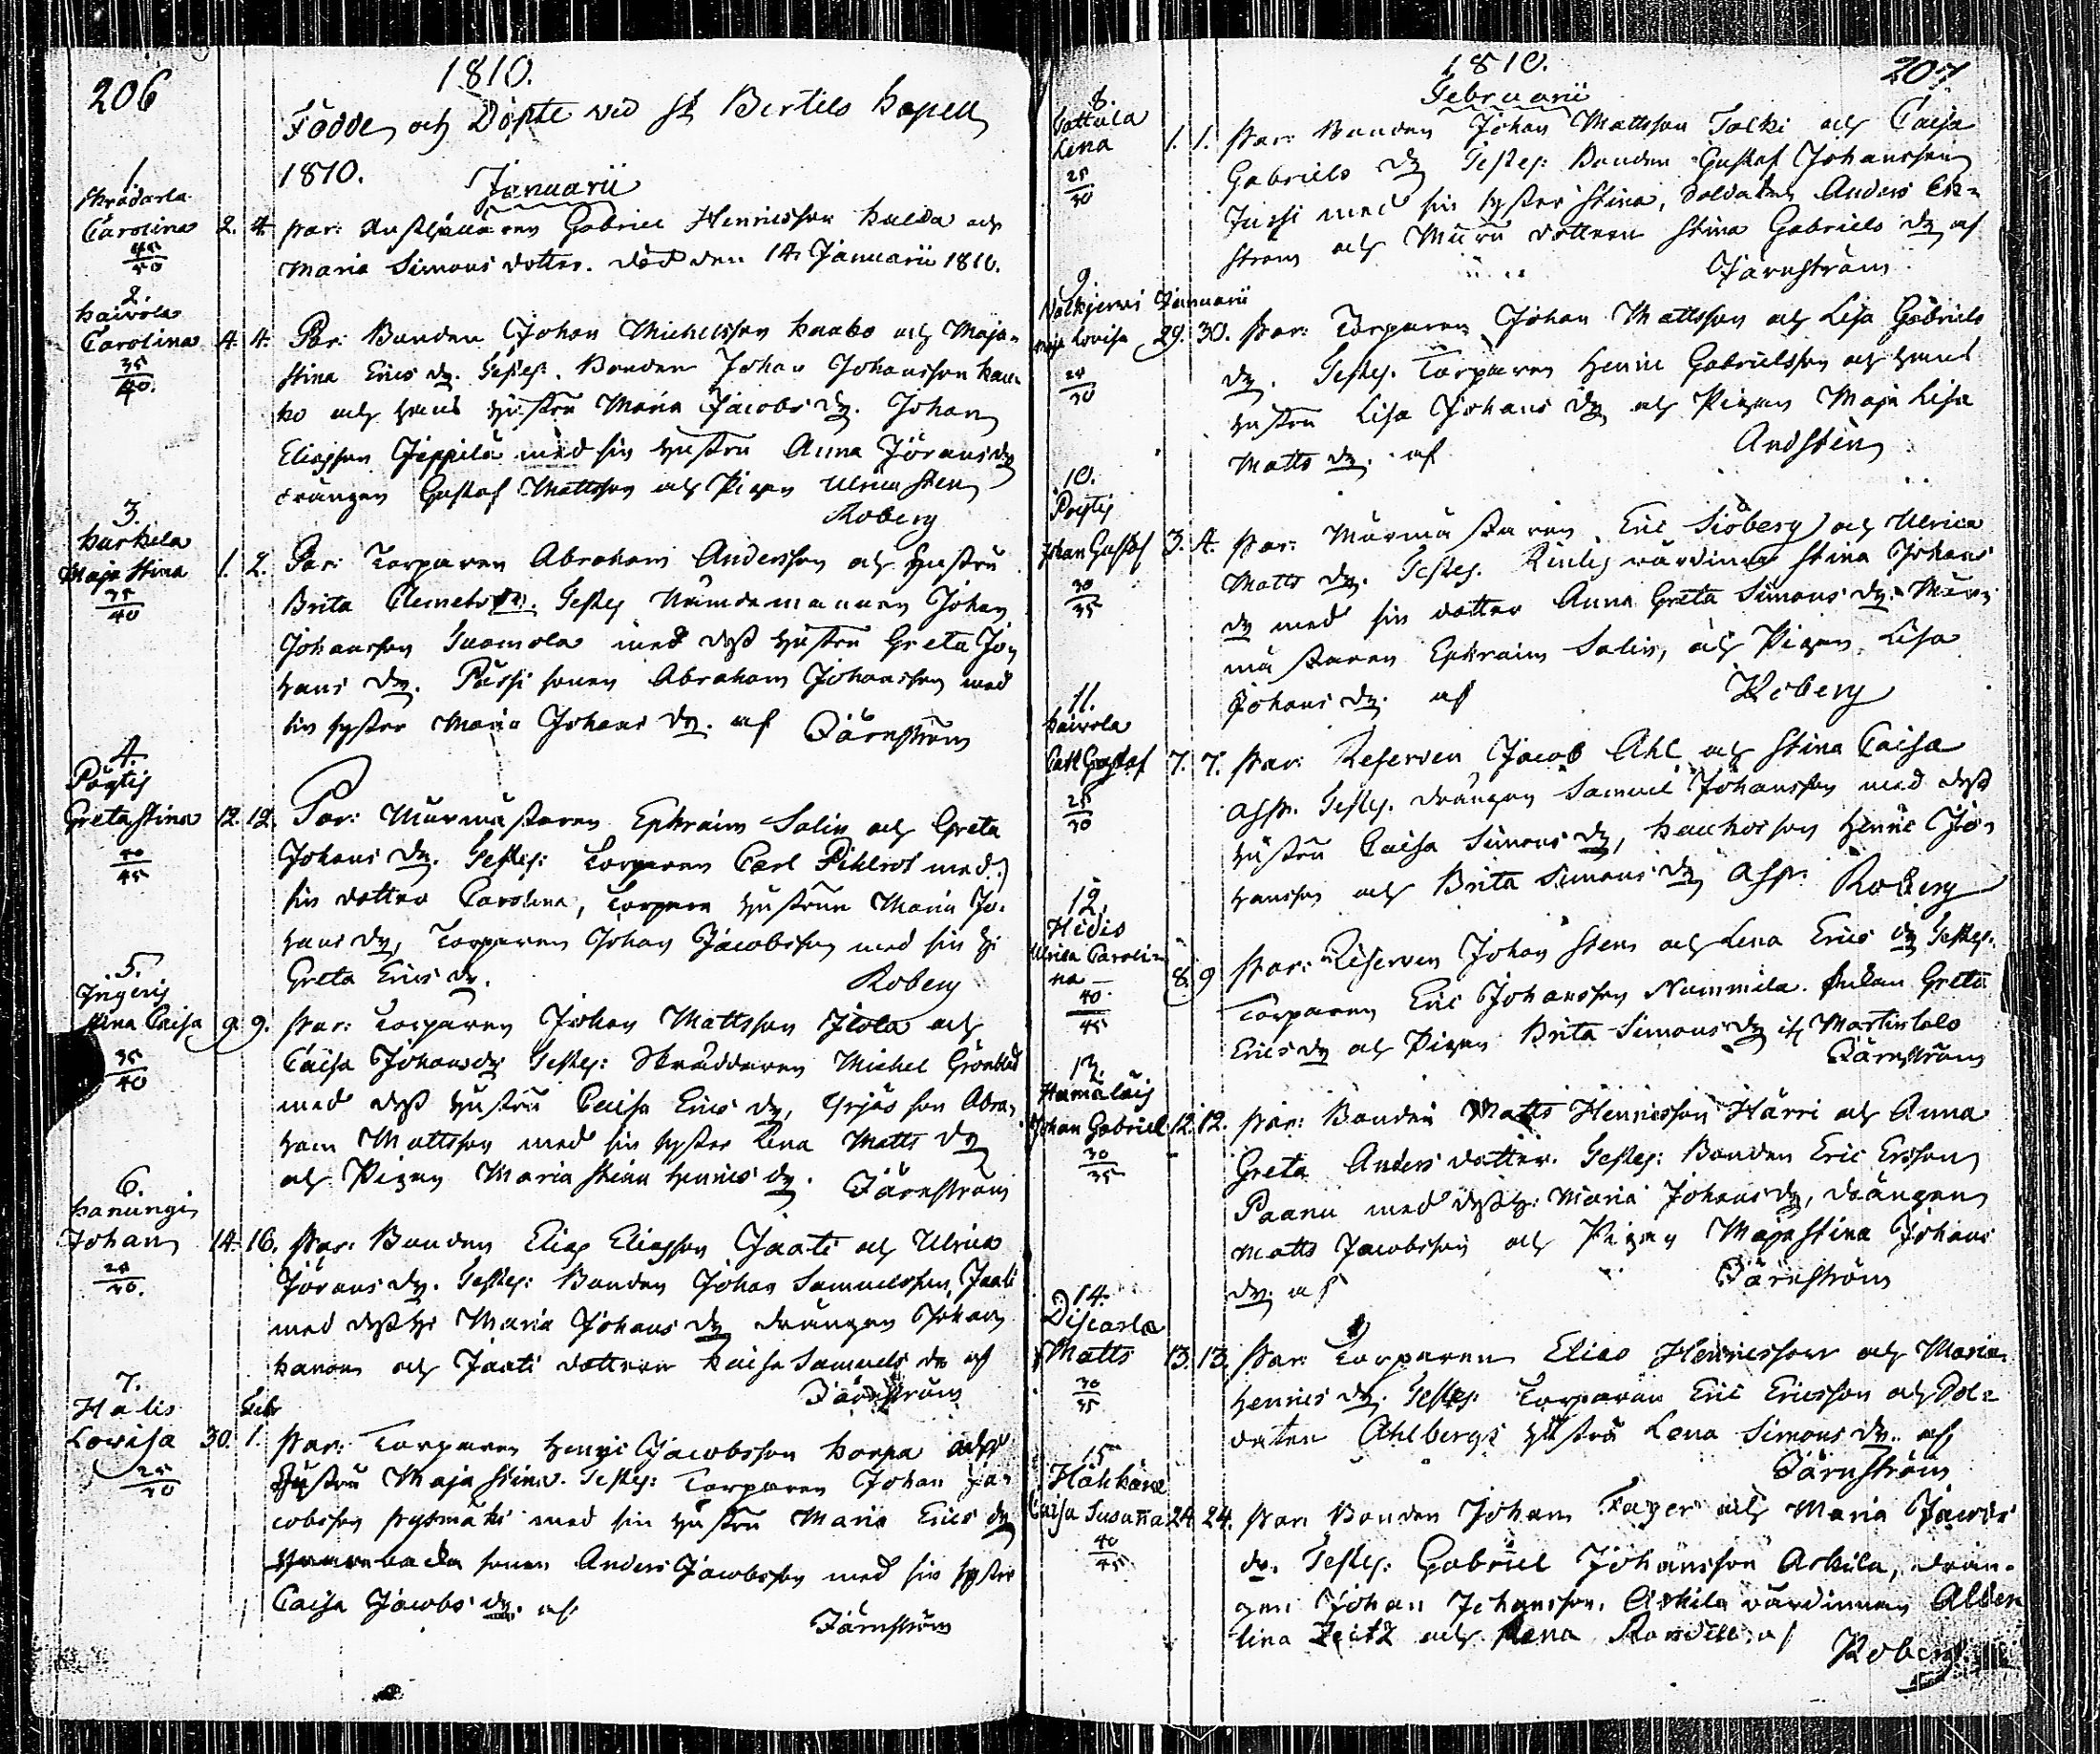 206
1810.
Födde och Döpte vid St Bertils Capell
1810. Januarii
1.
Skrädarla
Carolina 2. 4. Par: Gabriel Henricsson Hulda och
45/50 Maria Simons dotter. död den 14 Januarii 1810.
2.
Kaivola
Carolina 4. 4. Par: Bonden Johan Michelsson Kaako och Maja
35/40 Stina Erics dr. Testes: Bonden Johan Johansson Kaa-
ko och hans hustru Maria Jacobs dr. Johan
Eliasson Jeppilä med sin hustru Anna Jörans dr
drängen Gustaf Mattsson och Pigan Ulrica Sten
Roberg
3.
Karhula
Maja Stina 1. 2. Par: Torparen Abraham Andersson och hustru
35/40 Brita Clemets dr. Testes Nämdemannen Johan
Johansson Suomola med dess hustru Greta Jo-
hans dr. Pässi sonen Abraham Johansson med
sin syster Maria Johans dr. af Färnström
4.
Pöytis
Greta Stina 12. 12. Par: Murmästaren Ephraim Salin och Greta
40/45 Johans dr. Testes: Torparen Carl Pihlrot med
sin dotter Carolina, Torpare hustrun Maria Jo-
hans dr, Torparen Johan Jacobsson med sin h:
Greta Erics dr. Roberg
5.
Ingeris
Stina Caisa 9. 9. Par: Torparen Johan Mattsson Isola och
35/40 Caisa Johans dr Testes: Skräddaren Michel Grönblad
med dess hustru Caisa Erics dr, Yrjäs son Abra-
ham Mattsson med sin syster Lena Matts dr
och Pigan Maria Stina Henrics dr. Färnström
6.
Kanungi
Johan 14. 16. Par: Bonden Elias Eliasson Jaati och Ulrica
25/30. Jörans dr. Testes: Bonden Johan Samuelsson Jaati
med dess h: Maria Johans dr drängen Johan
Kanon och Jaati dottren Caisa Samuels dr af
Färnström
7.
Halis Febr
Lovisa 30. 1. Par: Torparen Henric Jacobsson Korpa och
25/30 hustru Maja Stina. Testes: Torparen Johan Ja-
cobsson med sin hustru Maria Erics dr
sonen Anders Jacobsson med sin syster
Caisa Jacobs dr. af
Färnström
1810. 207
Februarii
8.
Gottala
Lena 1. 1. Par: Bonden Johan Mattsson Talki och Caisa
25/30 Gabriels dr Testes: Bonden Gustaf Johansson
Jussi med sin syster Stina, Soldaten Anders Ek-
ström och Muru dottren Stina Gabriels dr af
Färnström
9.
Januarii
Maja Lovisa 29. 30. Par: Torparen Johan Mattsson och Lisa Gabriels
25/30 dr. Testes. Torparen Henric Gabrielsson och hans
hustru Lisa Johans dr och Pigan Maja Lisa
Matts dr. af Andsten
10.
Pöytis
Johan Gustaf 3. 4. Par: Murmästaren Eric Siöberg och Ulrica
30/35 Matts dr. Testes. värdinna Stina Johans
dr med sin dotter Anna Greta Simons dr. Mur-
mästaren Ephraim Salin, och Pigan Lisa
Johans dr. af Roberg
11.
Kaivola
Carl Gustaf 7. 7. Par: Reserven Jacob Ahl och Stina Caisa
25/30 Testes. drängen Samuel Johansson med dess
hustru Caisa Simons dr, Henric Jo-
hansson och Brita Simons dr Roberg
12.
Heidis
Ulrica Caroli-
na 8. 9 Par: Reserven Johan Sten och Lena Erics dr Testes.
40/45 Torparen Eric Johansson Nummila. Enkan Greta
Erics dr och Pigan Brita Simons dr
Färnström
13.
Hämäläis
Johan Gabriel 12. 12. Par: Bonden Matts Henricsson Härri och Anna
30/35 Greta Anders dotter. Testes: Bonden Eric Ersson
Paanu med dess h: Maria Johans dr, drängen
Matts Jacobsson och Pigan Maja Stina Johans
dr af Färnström
14.
Discarla
Matts 13. 13. Par: Torparen Elias Henricsson och Maria
30/35 Henrics dr. Testes: Torparen Eric Ericsson och Sol-
daten Ahlbergs hustru Lena Simons dr. af
Färnström
15
Häkkänä
Caisa Susanna 24. 24. Par: Bonden Johan Fager och Maria Jacobs
40/45 dr. Testes: Gabriel Johansson Ackila, drän-
gen Johan Johansson. Ackila värdinnan Alber-
tina Zeitz och Lena af Roberg.